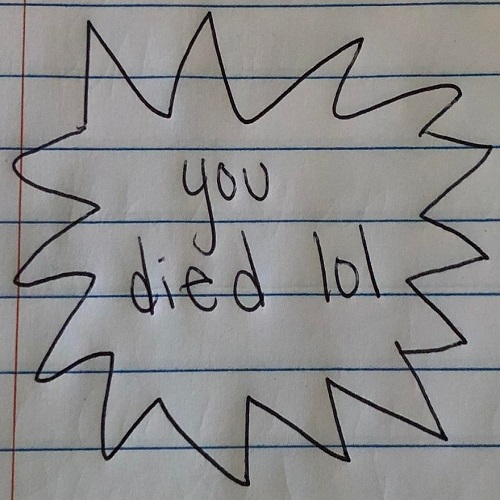 you
died lol